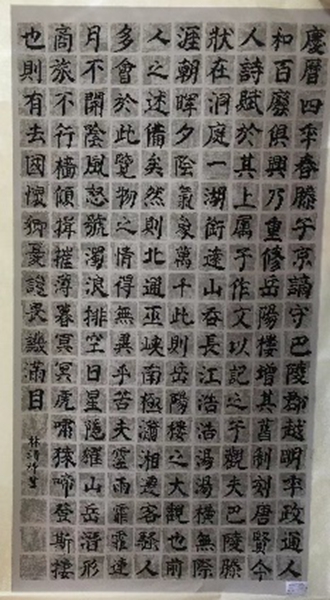 慶曆四年春滕子京謫守巴陵郡越明年政通人
和百廢俱興乃重修岳陽樓增其舊制刻唐賢今
人詩賦於其上属予作文以記之予觀夫巴陵勝
狀在洞庭一湖銜遠山吞長江浩浩湯湯橫無際
涯朝暉夕陰氣象萬千此則岳陽樓之大觀也前
人之述備矣然則北通巫峽南極瀟湘遷客騷人
多會於此覽物之情得無異乎若夫霪雨霏霏連
月不開陰風怒號濁浪排空日星隱耀山岳潛形
商旅不行檣傾楫摧薄暮冥冥虎嘯猿啼登斯樓
也則有去國懷鄉憂讒畏譏滿目